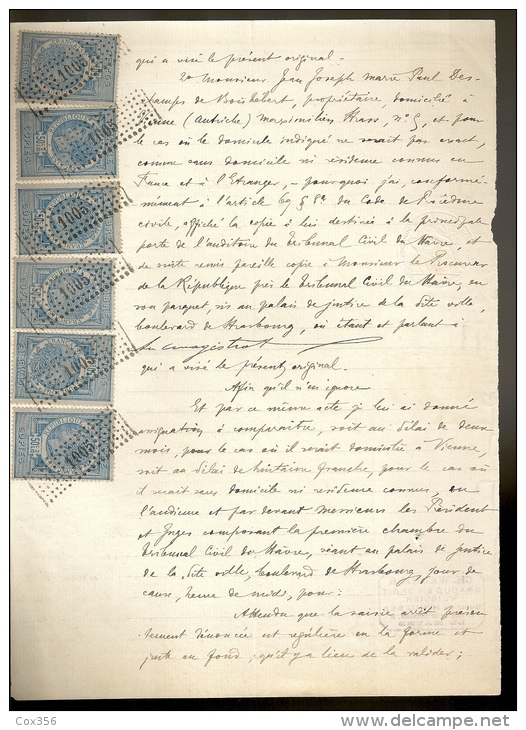 qui a visé le présent original.
2o Monsieur Jean Joseph Marie Paul Des-
champs de Boishebert, propriétaire, domicilié à
Vienne (Autriche) Maximilien Strass, no 5, et pour
le cas où le domicile indiqué ne serait pas exact,
comme sans domicile ni résidence connus en
France et à l'Etranger, pourquoi j'ai, conformé-
mément à l'article 69 § 8o du Code de Procédure
civile, affiché la copie à lui destinée à la principale
porte de l'auditoire du Tribunal Civil du Havre, et
de suite remis pareille copie à Monsieur le Procureur
de la République près le Tribunal Civil du Havre, en
son parquet, sis au palais de justice de la dite ville,
boulevard de Strasbourg, où étant et parlant à
un magistrat
qui a visé le présent original.
Afin qu'il n'en ignore
Et par ce même acte j'ai lui ai donné
assignation à comparaître, soit au délai de deux
mois, pour le cas où il serait domicilié à Vienne,
soit au délai de huitaine franche, pour le cas où
il serait sans domicile ni résidence connus, en
l'audience et par devant Messieurs les Président
et Juges composant la première chambre du
Tribunal Civil du Havre, séant au palais de justice
de la dite ville, boulevard de Strasbourg, jour de
cause, heure de midi, pour:
Attendu que la saisie arrêt présen
tement dénoncée est régulière en la forme et
juste au fond; qu'il y a lieu de la valider;
1005
1005
1005
1005
1005
1005
COPIES
COPIES
Cox356
www.delcampe.net